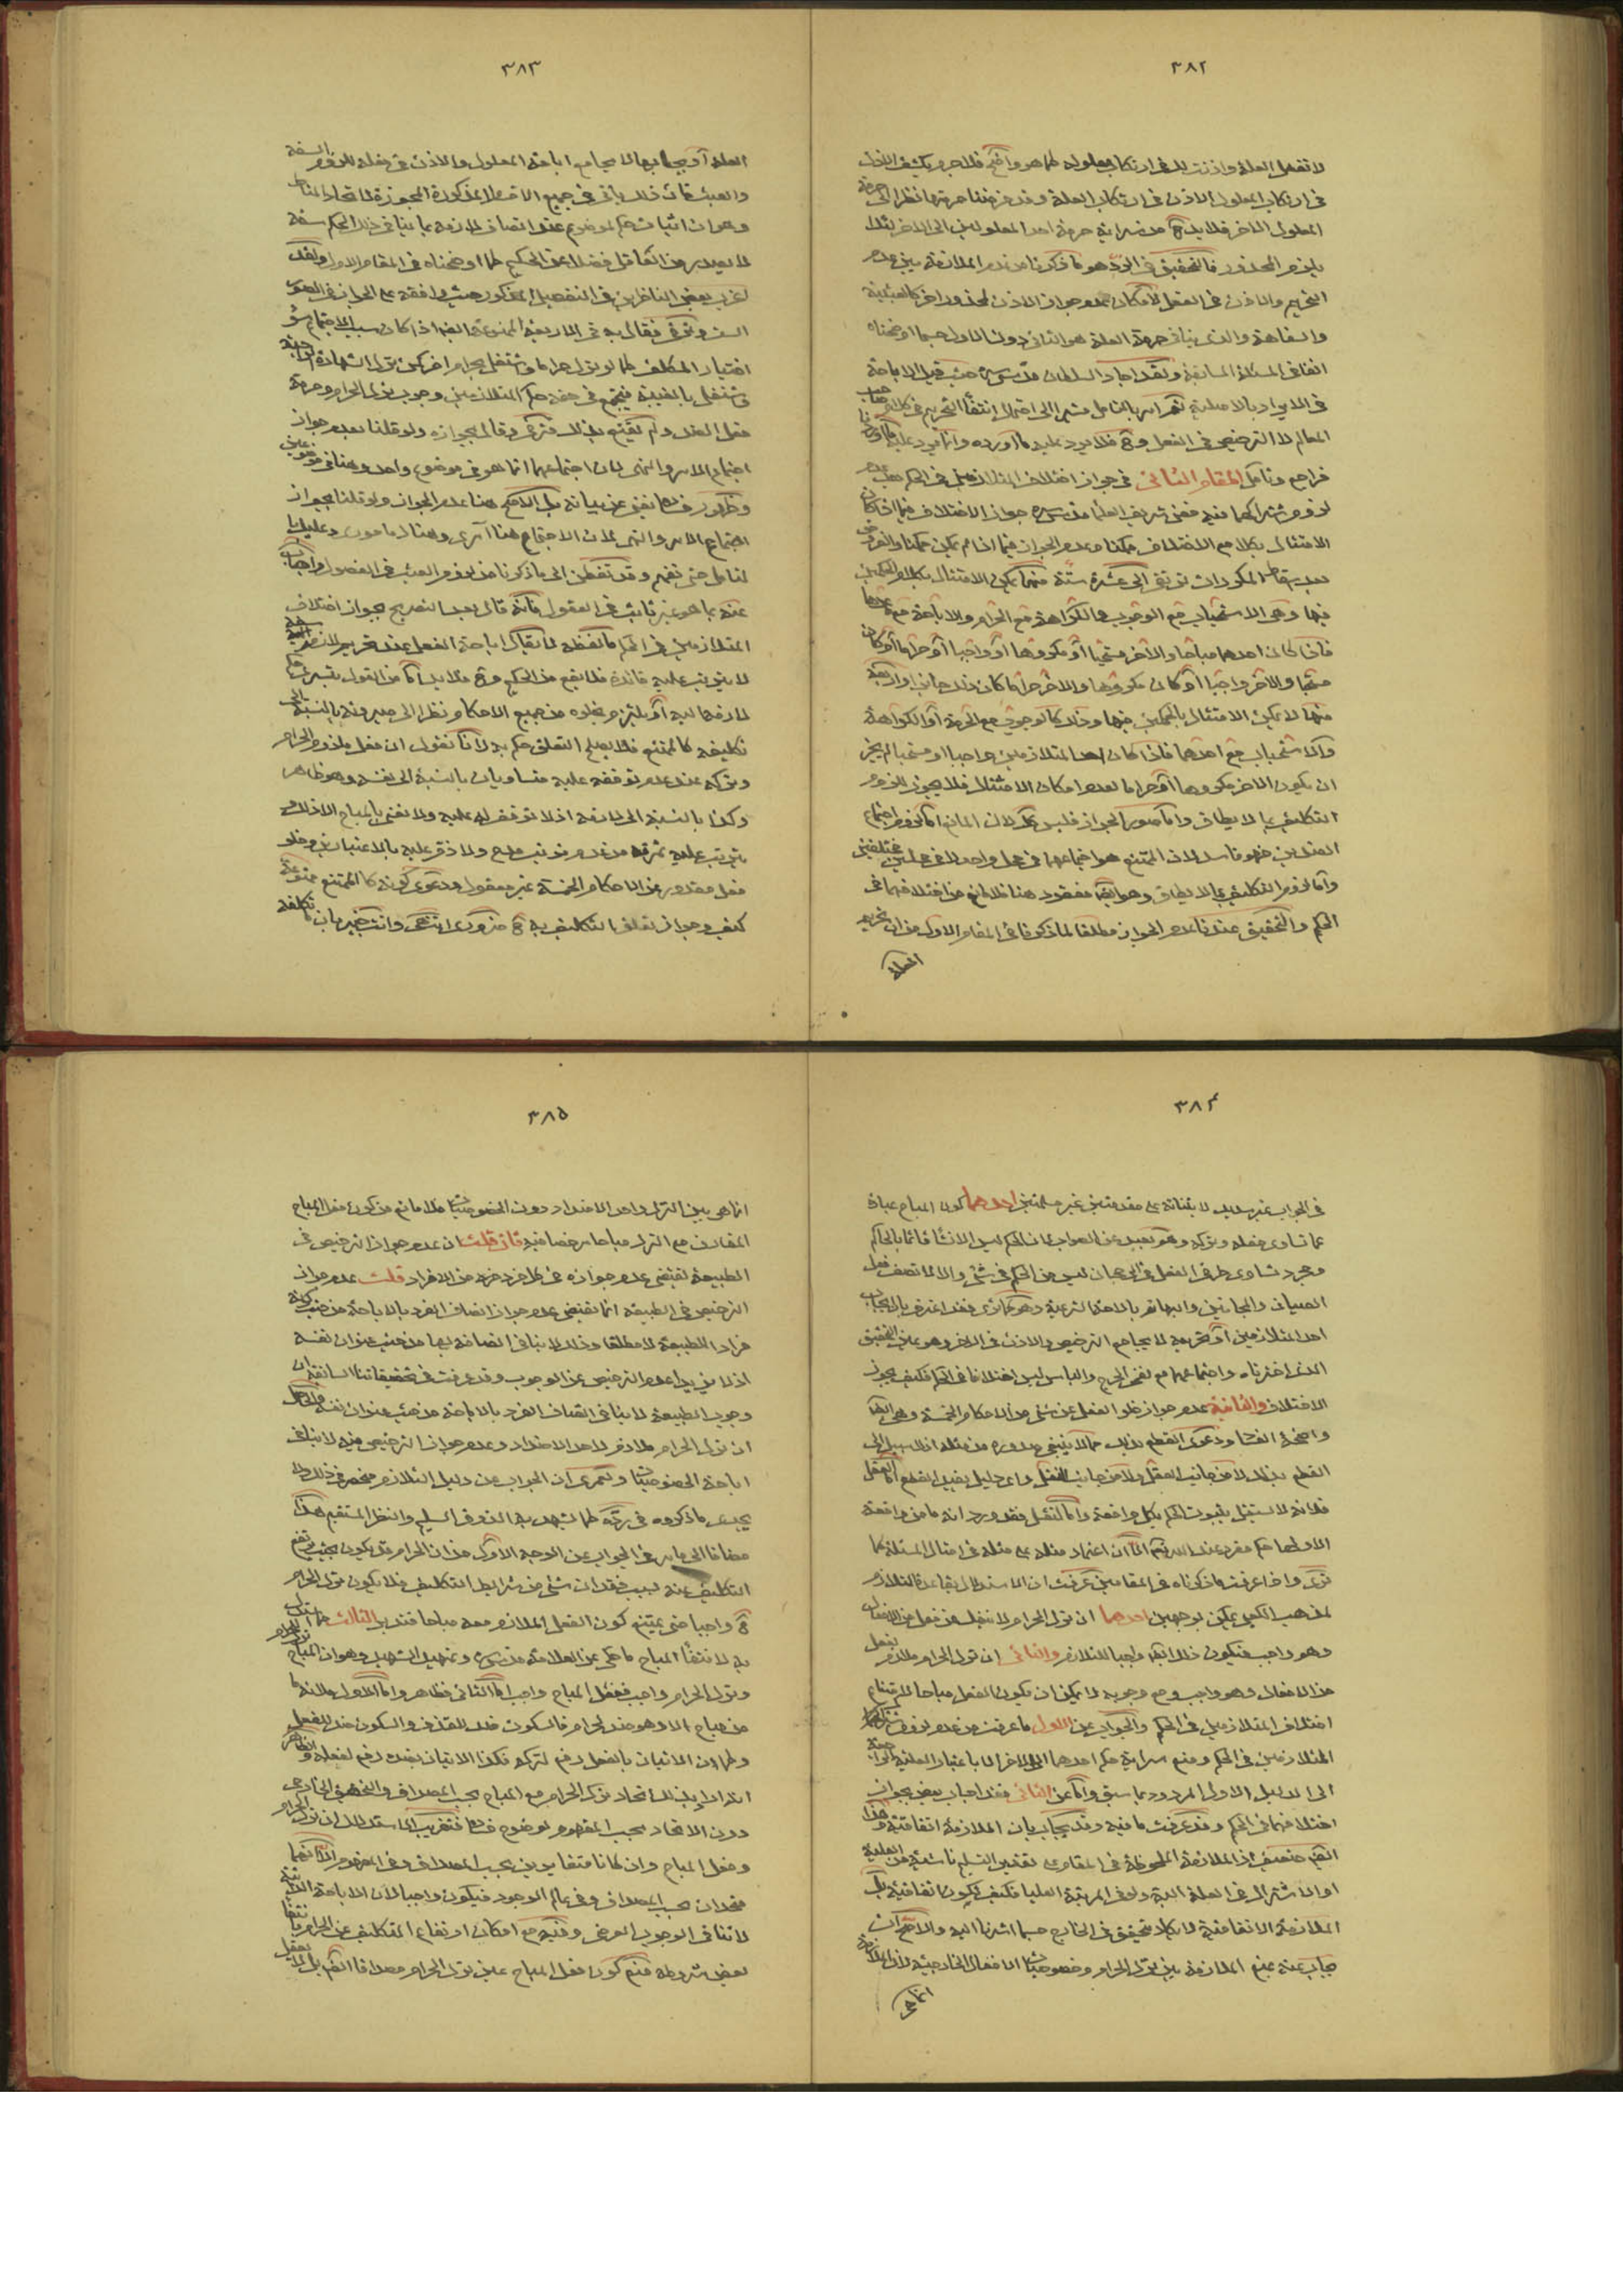 ٣٨٢
لا تفعل العلة واذنت لك في ارتكاب معلوله كما هو واضح فلا جرم يكشف الاذن
في ارتكاب المعلول الاذن في ارتكاب العلة وقد فرضنا حرمتها نظرا الى حرمة
المعلول الاخر فلا بد ح من سراية حرمة احد المعلولين الى الاخر لئلا
يلزم المحذور فالتحقيق في الرد هو ما ذكرنا من عدم الملازمة بين عدم
التحريم والاذن في الفعل لامكان عدم جواز الاذن لمحذور اخر كالعبثية
والسفاهة والذي ينافي حرمة العلة هو الثاني دون الاول حسبما اوضحناه
انفا في المسئلة السابقة ولقد اجاد السلطان قدس سره حيث قيد الاباحة
في الايراد بالاصلية ثم امر بالتامل مشيرا الى احتمال انتفاء التحريم في كلام صاحب
المعالم لا الترخيص في الفعل وح فلا يرد عليه ما اورده وانما يرد عليه
فراجع وتامل المقام الثاني في جواز اختلاف المتلازمين في الحكم بعد عدم
لزوم اشتراكهما فيه فعن شريف العلماء قدس سره جواز الاختلاف فيما اذا كان
الامتثال بكل مع الاختلاف ممكنا وعدم الجواز فيما اذا لم يكن ممكنا والصور
بعد اسقاط المكررات ترتقي الى عشرة ستة منها يمكن الامتثال بكلا الحكمين
فيها وهي الاستحباب مع الوجوب والكراهة مع الحرام والاباحة مع
فاذا كان احدهما مباحا والاخر مستحبا او مكروها او واجبا او حراما او كان
مستحبا والاخر واجبا او كان مكروها والاخر حراما كان ذلك جائزا واربعة
منها لا يمكن الامتثال بالحكمين فيها وذلك كالوجوب مع الحرمة او الكراهة
والاستحباب مع احدهما فاذا كان احد المتلازمين واجبا او مستحبا لم يجز
ان يكون الاخر مكروها او حراما لعدم امكان الامتثال فلا يجوز للزوم
التكليف بما لا يطاق واما صور الجواز فليس كك لان المانع اما لزوم اجتماع
الضدين فهو فاسد لان الممتنع هو اجتماعهما في محل واحد لا في محلين مختلفين
واما لزوم التكليف بما لا يطاق وهو ايضا مفقود هنا فلا مانع من اختلافهما في
الحكم والتحقيق عندنا عدم الجواز مطلقا لما ذكرنا في المقام الاول من ان تحريم
العلة
٣٨٣
العلة او ايجابها لا يجامع اباحة المعلول والاذن في فعله للزوم السفه
والعبث فان ذلك ياتي في جميع الاقسام المذكورة المجوزة لاتحاد المناط
وهو ان اثبات حكم لموضوع عند اتصاف لازمه بما ينافي ذلك الحكم سفه
لا يصدر من العاقل فضلا عن الحكيم كما اوضحناه في المقام الاول ولقد
اغرب بعض الناظرين في التفصيل المذكور حيث وافقه على الجواز في الصور
الست وترقى فقال به في الاربعة الممنوعة ايضا اذا كان سبب الاجتماع سوء
اختيار المكلف كما لو ترك حراما واشتغل بحرام اخر كمن ترك الشهادة الواجبة
واشتغل بالغيبة فيجتمع في حقه حكم المتلازمين وجوب ترك الحرام وحرمة
فعل الضد ولم يقنع بذلك فترقى وقال بجوازه ولو قلنا بعدم جواز
اجتماع الامر والنهي لان اجتماعهما انما هو في موضوع واحد وهنا في موضوعين
وظهور فساده يغني عن بيانه بل الاصح هنا عدم الجواز ولو قلنا بجواز
اجتماع الامر والنهي لان الاجتماع هنا آمري وهناك مأموري وعليك با
لتامل حتى تفهم وقد تفطن الى ما ذكرنا من لزوم العبث في الفصول واجاب
عنه بما هو غير ثابت في العقول فانه قال بعد التصريح بجواز اختلاف
المتلازمين في الحكم ما لفظه لا يقال اباحة الفعل عند تحريم لازمه
لا يترتب عليه فائدة فلا يقع من الحكيم وح فلا بد اما من القول بتسرية حكم
لازمه اليه او يلتزم بخلوه من جميع الاحكام نظرا الى صيرورته بالنسبة الى
تكليفه كالممتنع فلا يصلح لتعلق حكم به لانا نقول ان فعل ملزوم الحرام
وتركه عند عدم توقفه عليه متساويان بالنسبة الى نفسه وهو ظاهر
وكذا بالنسبة الى لازمه اذ لا توقف له عليه ولا نعني بالمباح الا ذلك و
يترتب عليه ثمرته من عدم ترتب مدح ولا ذم عليه بالاعتبارين وخلو
فعل مقدور عن الاحكام الخمسة غير معقول ودعوى كونه كالممتنع ممنوعة
كيف وجواز تعلق التكليف به ح ضروري انتهى وانت خبير بان ما تكلفه
٣٨٤
في الجواب غير سديد لابتنائه على مقدمتين غير مسلمتين احدهما كون المباح عبارة
عما تساوى فعله وتركه وهو بعيد عن الصواب لان الحكم ليس الا انشاء قائما بالحاكم
ومجرد تساوي طرفي الفعل في الرجحان ليس من الحكم في شئ والا لما تصف فعل
الصبيان والمجانين والبهائم بالاحة الشرعية وهو كما ترى فقد اعترف بان ايجاب
احد المتلازمين او تحريمه لا يجامع الترخيص والاذن في الاخر وهو عين التحقيق
الذي اخترناه واجتماعهما مع نفي الحرج والباس ليس اختلافا في الحكم فكيف يجوز
الاختلاف والثانية عدم جواز خلو الفعل عن شئ من الاحكام الخمسة وهي ايضا
واضحة الفساد ودعوى القطع بذلك مما لا ينبغي صدوره من مثله اذ لا سبيل الى
القطع بذلك لا من جانب العقل ولا من جانب النقل واي دليل يفيد القطع اما العقل
فلانه لا يستقل بثبوت الحكم لكل واقعة واما النقل فقد ورد انه ما من واقعة
الا ولها حكم مقرر عند الله تعالى الا ان اعتماد مثله على مثله في امثال المسئلة كما
ترى واذا عرفت ما ذكرناه في المقامين عرفت ان الاستدلال بقاعدة التلازم
لمذهب الكعبي يمكن بوجهين احدهما ان ترك الحرام لا ينفك عن فعل من الافعال
وهو واجب فيكون ذلك ايضا واجبا للتلازم والثاني ان ترك الحرام ملازم لفعل
من الافعال وهو واجب ومع وجوبه لا يمكن ان يكون الفعل مباحا لامتناع
اختلاف المتلازمين في الحكم والجواب عن الاول ما عرفت من عدم لزوم اشتراك
المتلازمين في الحكم ومنع سراية حكم احدهما الى الاخر الا باعتبار العلية الراجعة
الى الدليل الاول المردود بما سبق واما عن الثاني فقد اجاب بعض بجواز
اختلافهما في الحكم وقد عرفت ما فيه وقد يجاب بان الملازمة اتفاقية وهذا
ايضا ضعيف اذ الملازمة الملحوظة في المقام على تقدير التسليم ناشئة من العلية
او الاشتراك في العلة البتة ولو في المرتبة العليا فكيف يكون اتفاقية بل
الملازمة الاتفاقية لا يكاد يتحقق في الخارج حسبما اشرنا اليه والاصح ان
يجاب عنه بمنع الملازمة بين ترك الحرام وخصوصيات الافعال الخارجية لان الملازمة
انما هي
٣٨٥
انما هي بين الترك واحد الاضداد دون الخصوصيات فلا مانع من كون فعل المباح
المقارن مع الترك مباحا مرخصا فيه فان قلت ان عدم جواز الترخيص في
الطبيعة يقتضي عدم جوازه في كل فرد فرد من الافراد قلت عدم جواز
الترخيص في الطبيعة انما يقتضي عدم جواز اتصاف الفرد بالاباحة من حيث كونه
فردا للطبيعة لا مطلقا وذلك لا ينافي اتصافه بها من حيث عنوان نفسه
اذ لا يزيد عدم الترخيص عن الوجوب وقد عرفت في تحقيقاتنا السابقة ان
وجوب الطبيعة لا ينافي اتصاف الفرد بالاباحة من حيث عنوان نفسه والحاصل
ان ترك الحرام ملازم لاحد الاضداد وعدم جواز الترخيص فيه لا ينافي
اباحة الخصوصيات ولعمري ان الجواب عن دليل التلازم منحصر في ذلك ولا
يجدي ما ذكروه في رده كما يشهد به الذوق السليم والنظر المستقيم هذا
مضافا الى ما مر في الجواب عن الوجه الاول من ان الحرام قد يكون بحيث يرتفع
التكليف عنه لسبب فقدان شئ من شرائط التكليف فلا يكون ترك الحرام
ح واجبا حتى يمتنع كون الفعل الملازم معه مباحا فتدبر الثالث مما استدل
به لانتفاء المباح ما حكي عن العلامة قدس سره وتمهيد الشهيد وهو ان المباح ترك الحرام
وترك الحرام واجب ففعل المباح واجب اما الثاني فظاهر واما الاول فلانه ما
من مباح الا وهو ضد لحرام فالسكوت ضد للقذف والسكون ضد للفعل
وكما ان الاتيان بالفعل رفع لتركه فكذا الاتيان بضده رفع لفعله والظاهر
انه اراد بذلك اتحاد ترك الحرام مع المباح بحسب المصداق والتحقق الخارجي
دون الاتحاد بحسب المفهوم لوضوح فساده فتقريب الاستدلال ان ترك الحرام
وفعل المباح وان كانا متغايرين بحسب المصداق وفي المفهوم الا انهما
متحدان بحسب المصداق وفي عالم الوجود فيكون واجبا لان الاباحة الذاتية
لا تنافي الوجوب العرضي وفيه مع امكان ارتفاع التكليف عن الحرام بانتفاء
بعض شروطه منع كون فعل المباح عين ترك الحرام مصداقا ايضا بل لا يعقل